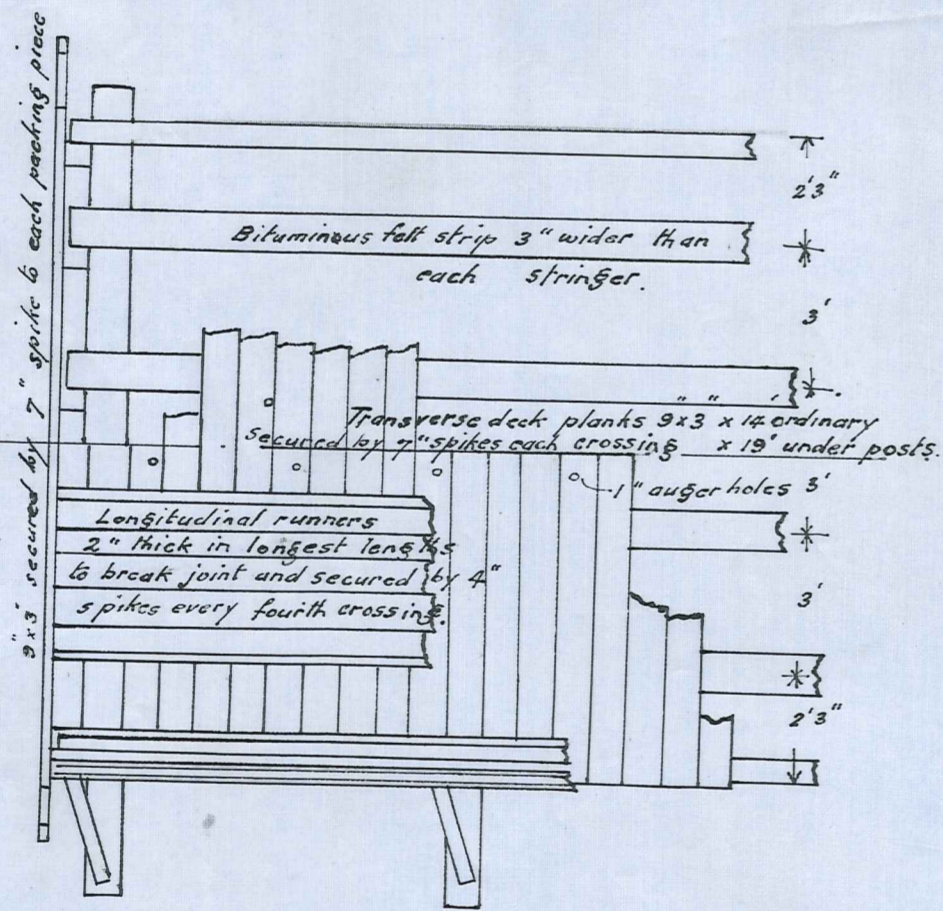 9"x3" secured by 7" spike to each packing piece
2'3"
Bituminous felt strip 3" wider than
each stringer.
3'
Transverse deck planks 9"x3" x 14' ordinary
secured by 7" spikes each crossing x 19' under posts.
1" auger holes
3'
Longitudinal runners
2" thick in longest lengths
to break joint and secured by 4"
spikes every fourth crossing.
3'
2'3"